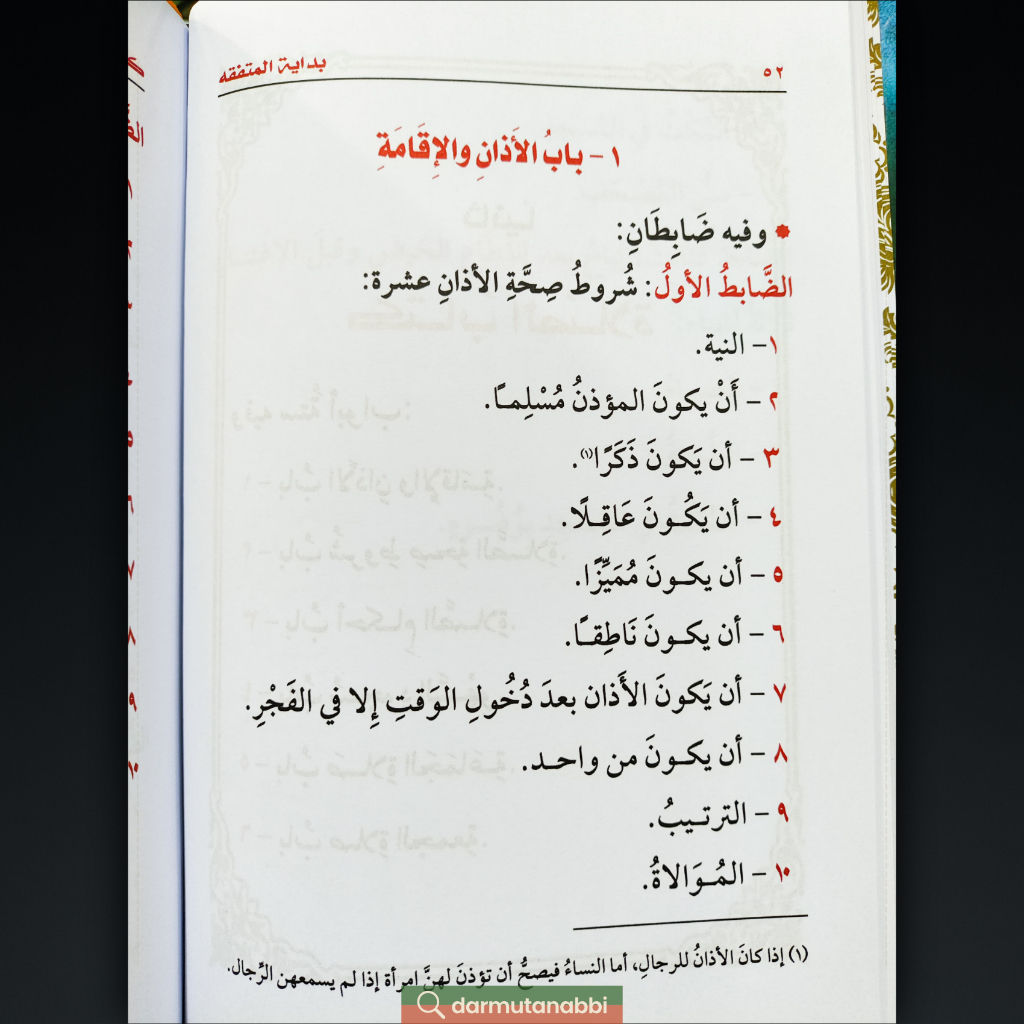 ٥٢
بداية المتفقه
١ - بابُ الأَذانِ والإِقَامَةِ
وفيه ضَابِطَانِ:
الضَّابطُ الأولُ: شُروطُ صِحَّةِ الأذانِ عشرة:
١- النية.
٢ - أَنْ يكونَ المؤذنُ مُسْلِمًا.
٣ - أن يَكونَ ذَكَرًا(١).
٤ - أن يَكُونَ عَاقِلًا.
٥ - أن يكونَ مُمَيِّزًا.
٦ - أن يكونَ نَاطِقًا.
٧ - أن يَكونَ الأَذان بعدَ دُخُولِ الوَقتِ إِلا في الفَجْرِ.
٨ - أن يكونَ من واحد.
٩ - الترتيبُ.
١٠ - المُوَالاةُ.
(١) إذا كانَ الأذانُ للرجالِ، أما النساءُ فيصحُّ أن تؤذنَ لهنَّ امرأة إذا لم يسمعهن الرِّجال.
darmutanabbi